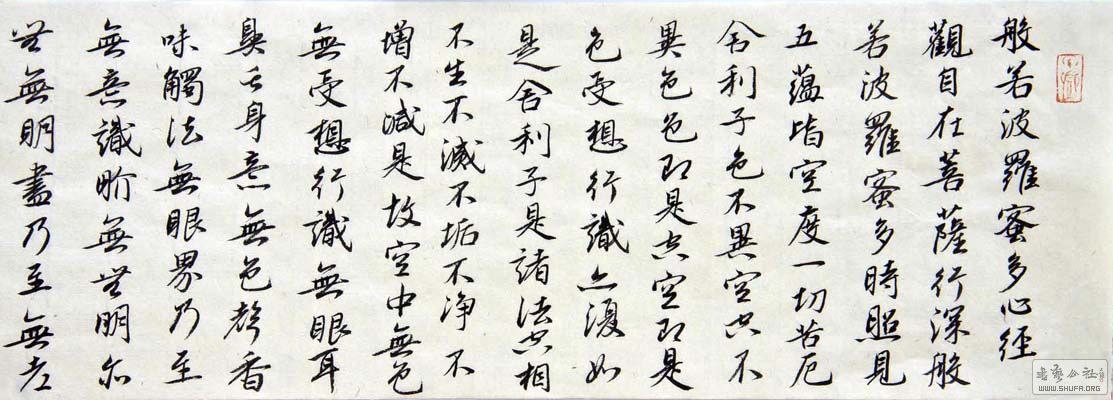 般若波羅蜜多心経
觀自在菩薩行深般
若波羅蜜多時照見
五蘊皆空度一切苦厄
舍利子色不異空空不
異色色即是空空即是
色受想行識亦復如
是舍利子是諸法空相
不生不滅不垢不净不
增不減是故空中無色
無受想行識無眼耳
鼻舌身意無色聲香
味觸法無眼界乃至
無意識界無无明亦
无無明盡乃至無老
書藝公社
WWW.SHUFA.ORG